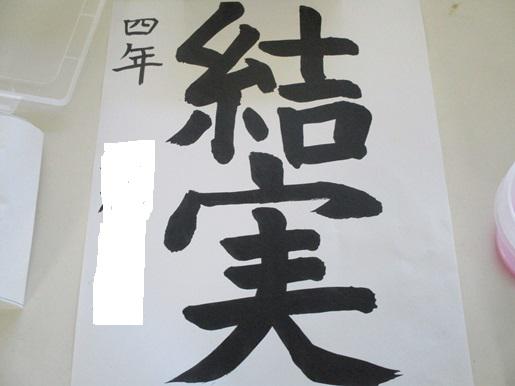 結実
四年